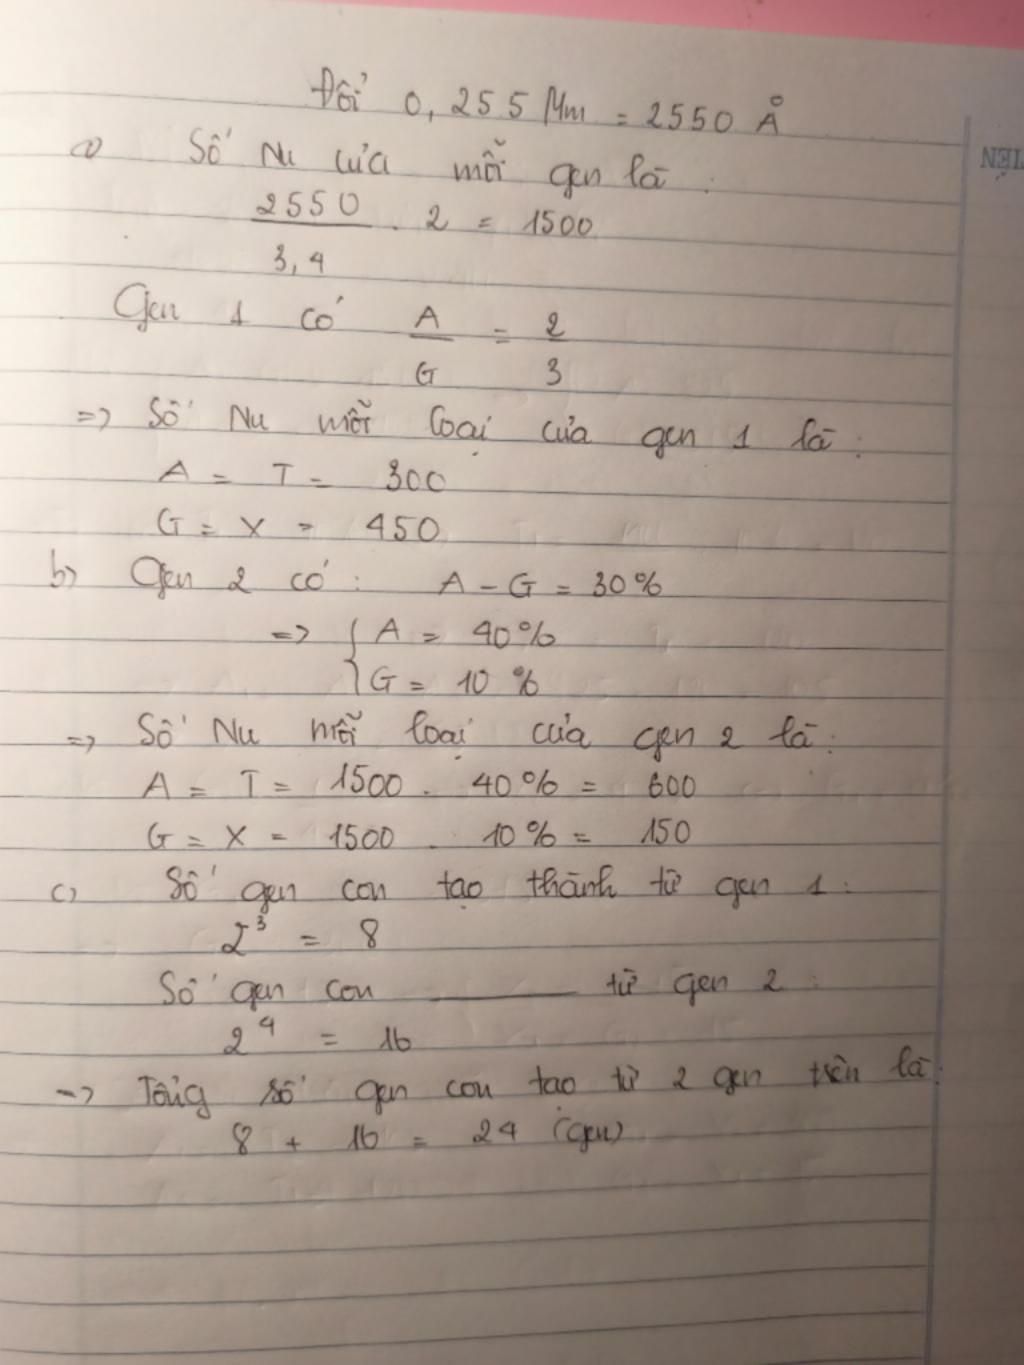 Đổi 0,255 Mm = 2550 Å
a) Số Nu của mỗi gen là :
2550
____ . 2 = 1500
3,4
Gen 1 có A/G = 2/3
=> Số Nu mỗi loại của gen 1 là :
A = T = 300
G = X = 450
b) Gen 2 có : A - G = 30%
=> { A = 40%
G = 10 %
=> Số Nu mỗi loại của gen 2 là :
A = T = 1500 . 40% = 600
G = X = 1500 . 10% = 150
c) Số gen con tạo thành từ gen 1 :
2³ = 8
Số gen con ——— từ gen 2 :
2⁴ = 16
-> Tổng số gen con tạo từ 2 gen trên là :
8 + 16 = 24 (gen)